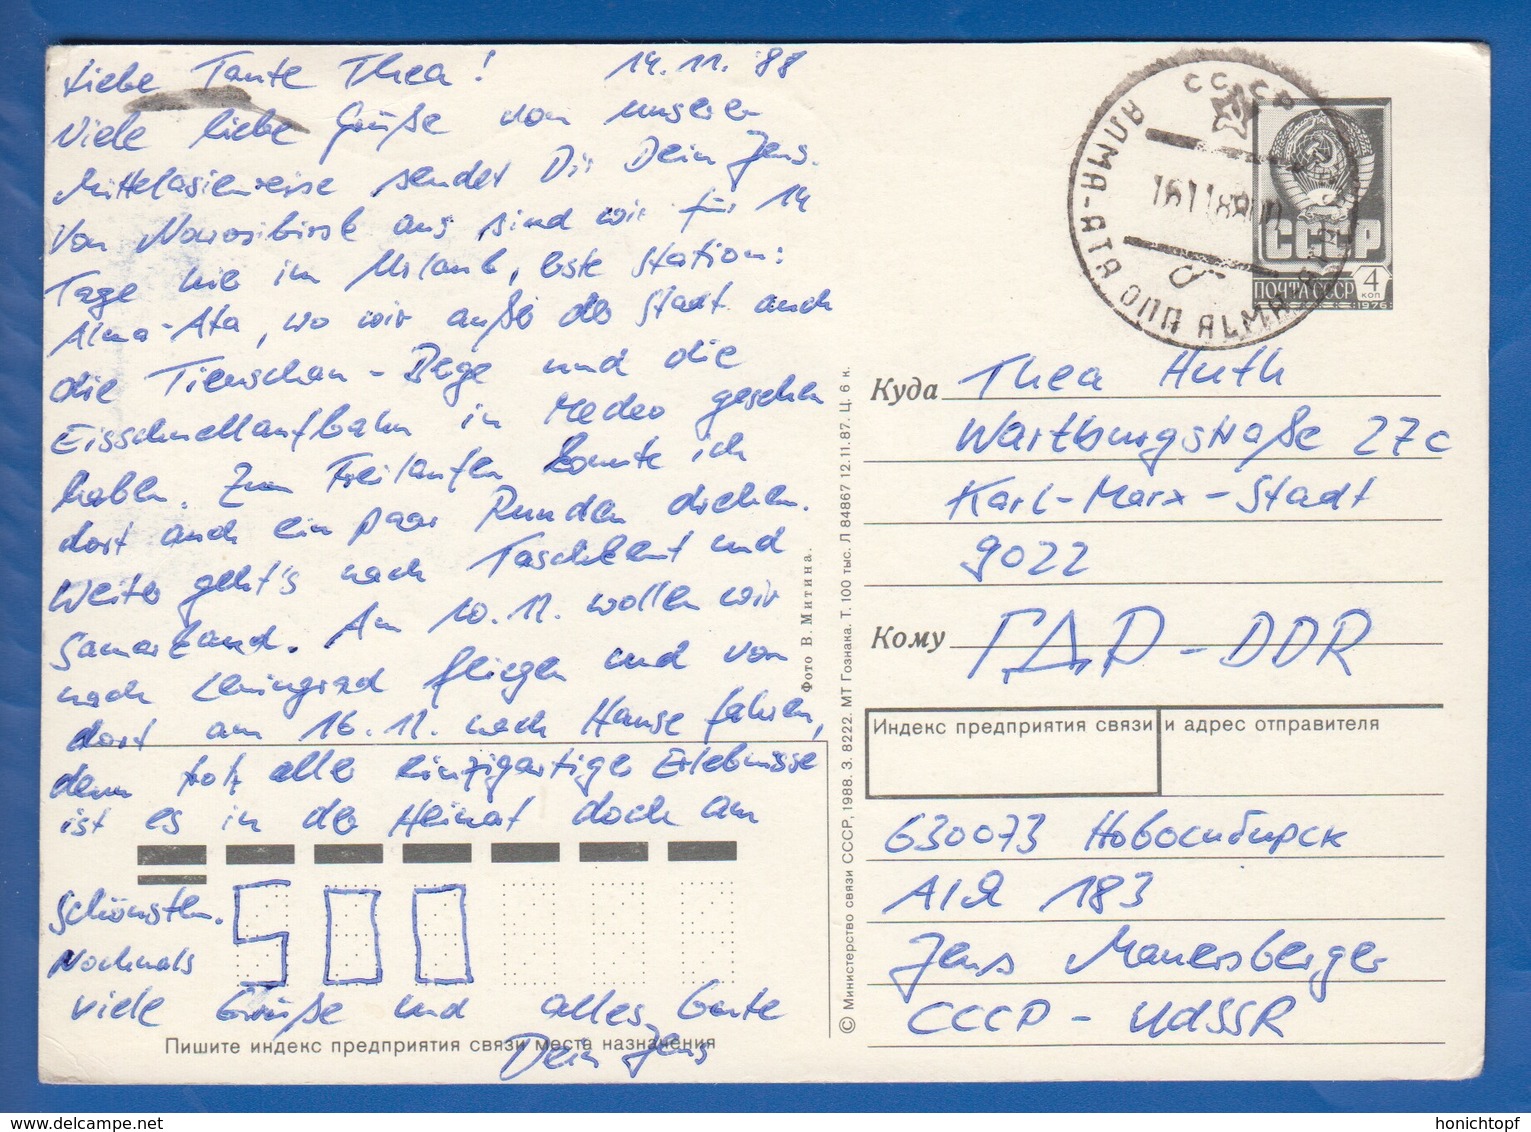 Liebe Tante Thea! 14.11.'88
Viele liebe Grüße von unserer
Mittelasienreise sendet Dir Dein Jens.
Von Nowosibirsk aus sind wir für 14
Tage hier im Urlaub, erste Station:
Alma-Ata, wo wir außer der Stadt auch
die Tienschan-Berge und die
Eisschnellaufbahn in Medeo gesehen
haben. Zum Freilaufen konnte ich
dort auch ein paar Runden drehen.
Weiter geht's nach Taschkent und
Samarkand. Am 20.11. wollen wir
nach Leningrad fliegen und von
dort am 26.11. nach Hause fahren,
denn trotz aller einzigartiger Erlebnisse
ist es in der Heimat doch am
schönsten.
Nochmals
viele Grüße und alles Gute
Dein Jens
500
Пишите индекс предприятия связи места назначения
Фото В. Митина.
© Министерство связи СССР, 1988. З. 8222. МТ Гознака. Т. 100 тыс. Л 84867 12.11.87. Ц. 6 к.
СССР
АЛМА-АТА ОПП ALMA-ATA
б
СССР
ПОЧТА СССР 4 коп
1976
Куда Thea Huth
Wartburgstraße 27c
Karl-Marx-Stadt
9022
Кому ГДР - DDR
Индекс предприятия связи и адрес отправителя
630073 Новосибирск
А/Я 183
Jens Mauersberger
СССР - UdSSR
honichtopf